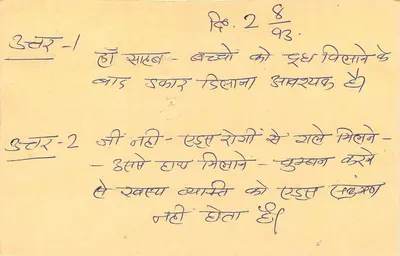 दि. 2 8/93.
उत्तर-1 हाँ साहब- बच्चों को दूध पिलाने के
बाद डकार दिलाना आवश्यक है।
उत्तर-2 जी नही- एड्स रोगी से गले मिलने-
- उससे हाथ मिलाने- चुम्बन करने
से स्वस्थ व्यक्ति को एड्स संक्रमण
नही होता है।